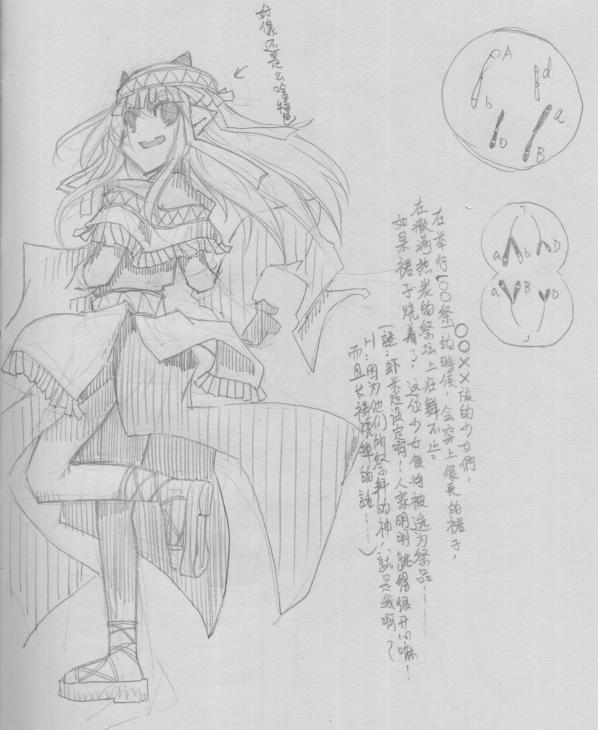 好像还是么啥特色
〇〇××族的少女們，
在举行《〇〇祭》的時候，会穿上很長的裙子，
在撒满热炭的祭坛上狂舞不止。
如果裙子烧着了，这位少女便将被选为祭品……
（謎：虾米惹设定啊！人家明明跳得很开心嘛！
H：因为他们所祭拜的神，就是我啊～
而且长裙烧掉的話……）
A
b
d
a
D
B
a
B
b
D
a
B
D